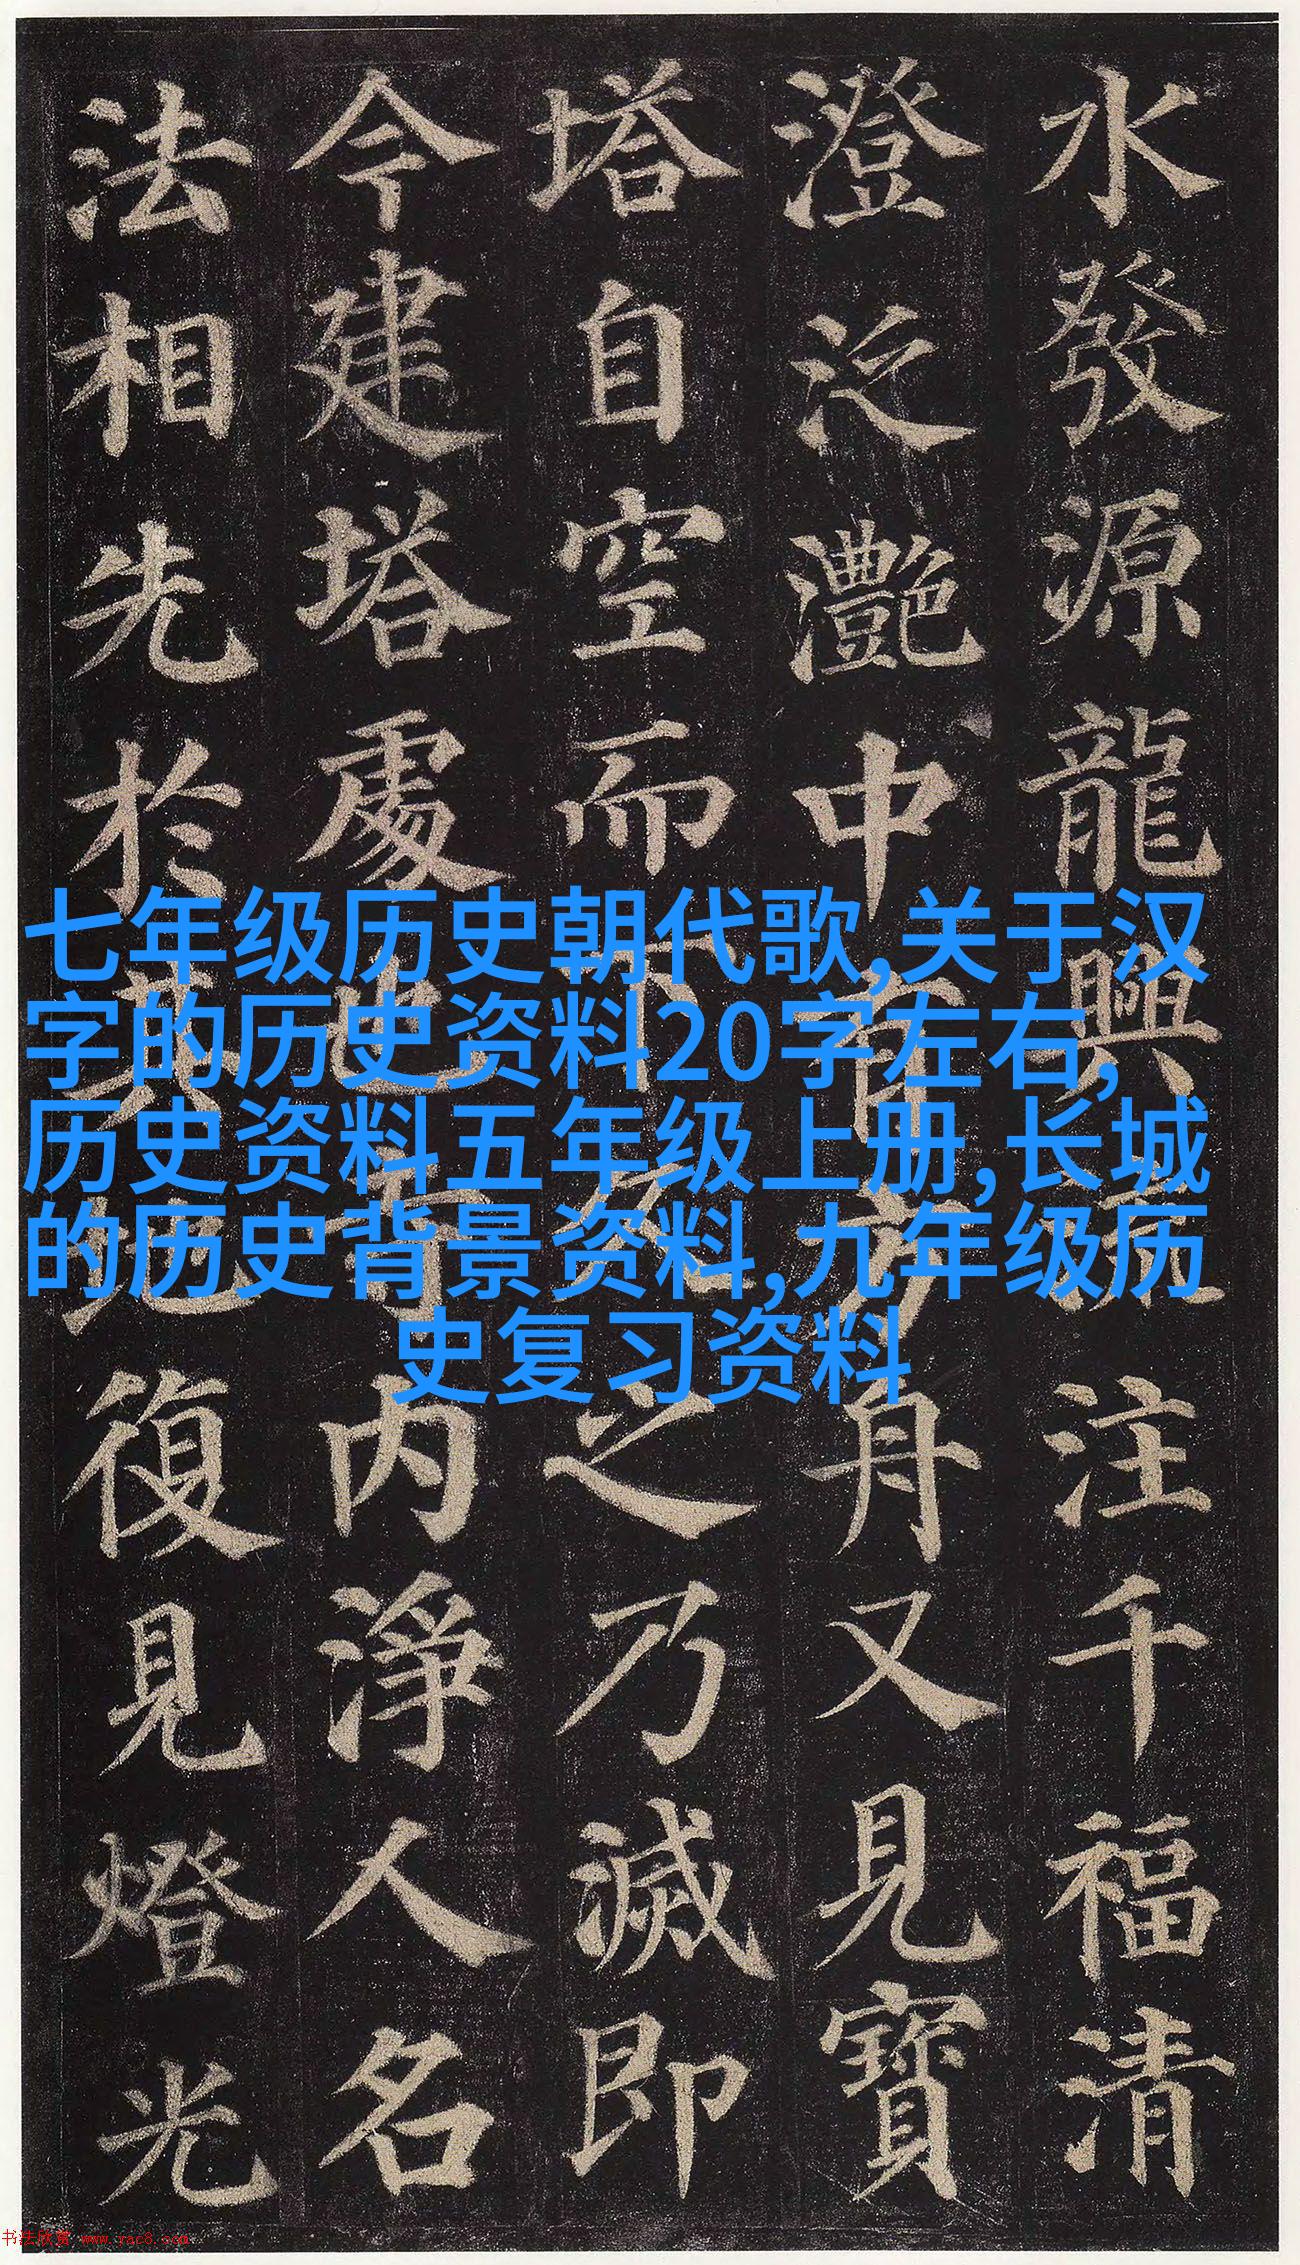 水發源龍興流注千福清
澄泛灧中有方舟又見寶
塔自空而下久之乃滅即
今建塔處也寺内淨人名
法相先於其地復見燈光
七年级历史朝代歌,关于汉
字的历史资料20字左右,
历史资料五年级上册,长城
的历史背景资料,九年级历
史复习资料
书法欣赏 www.yac8.com